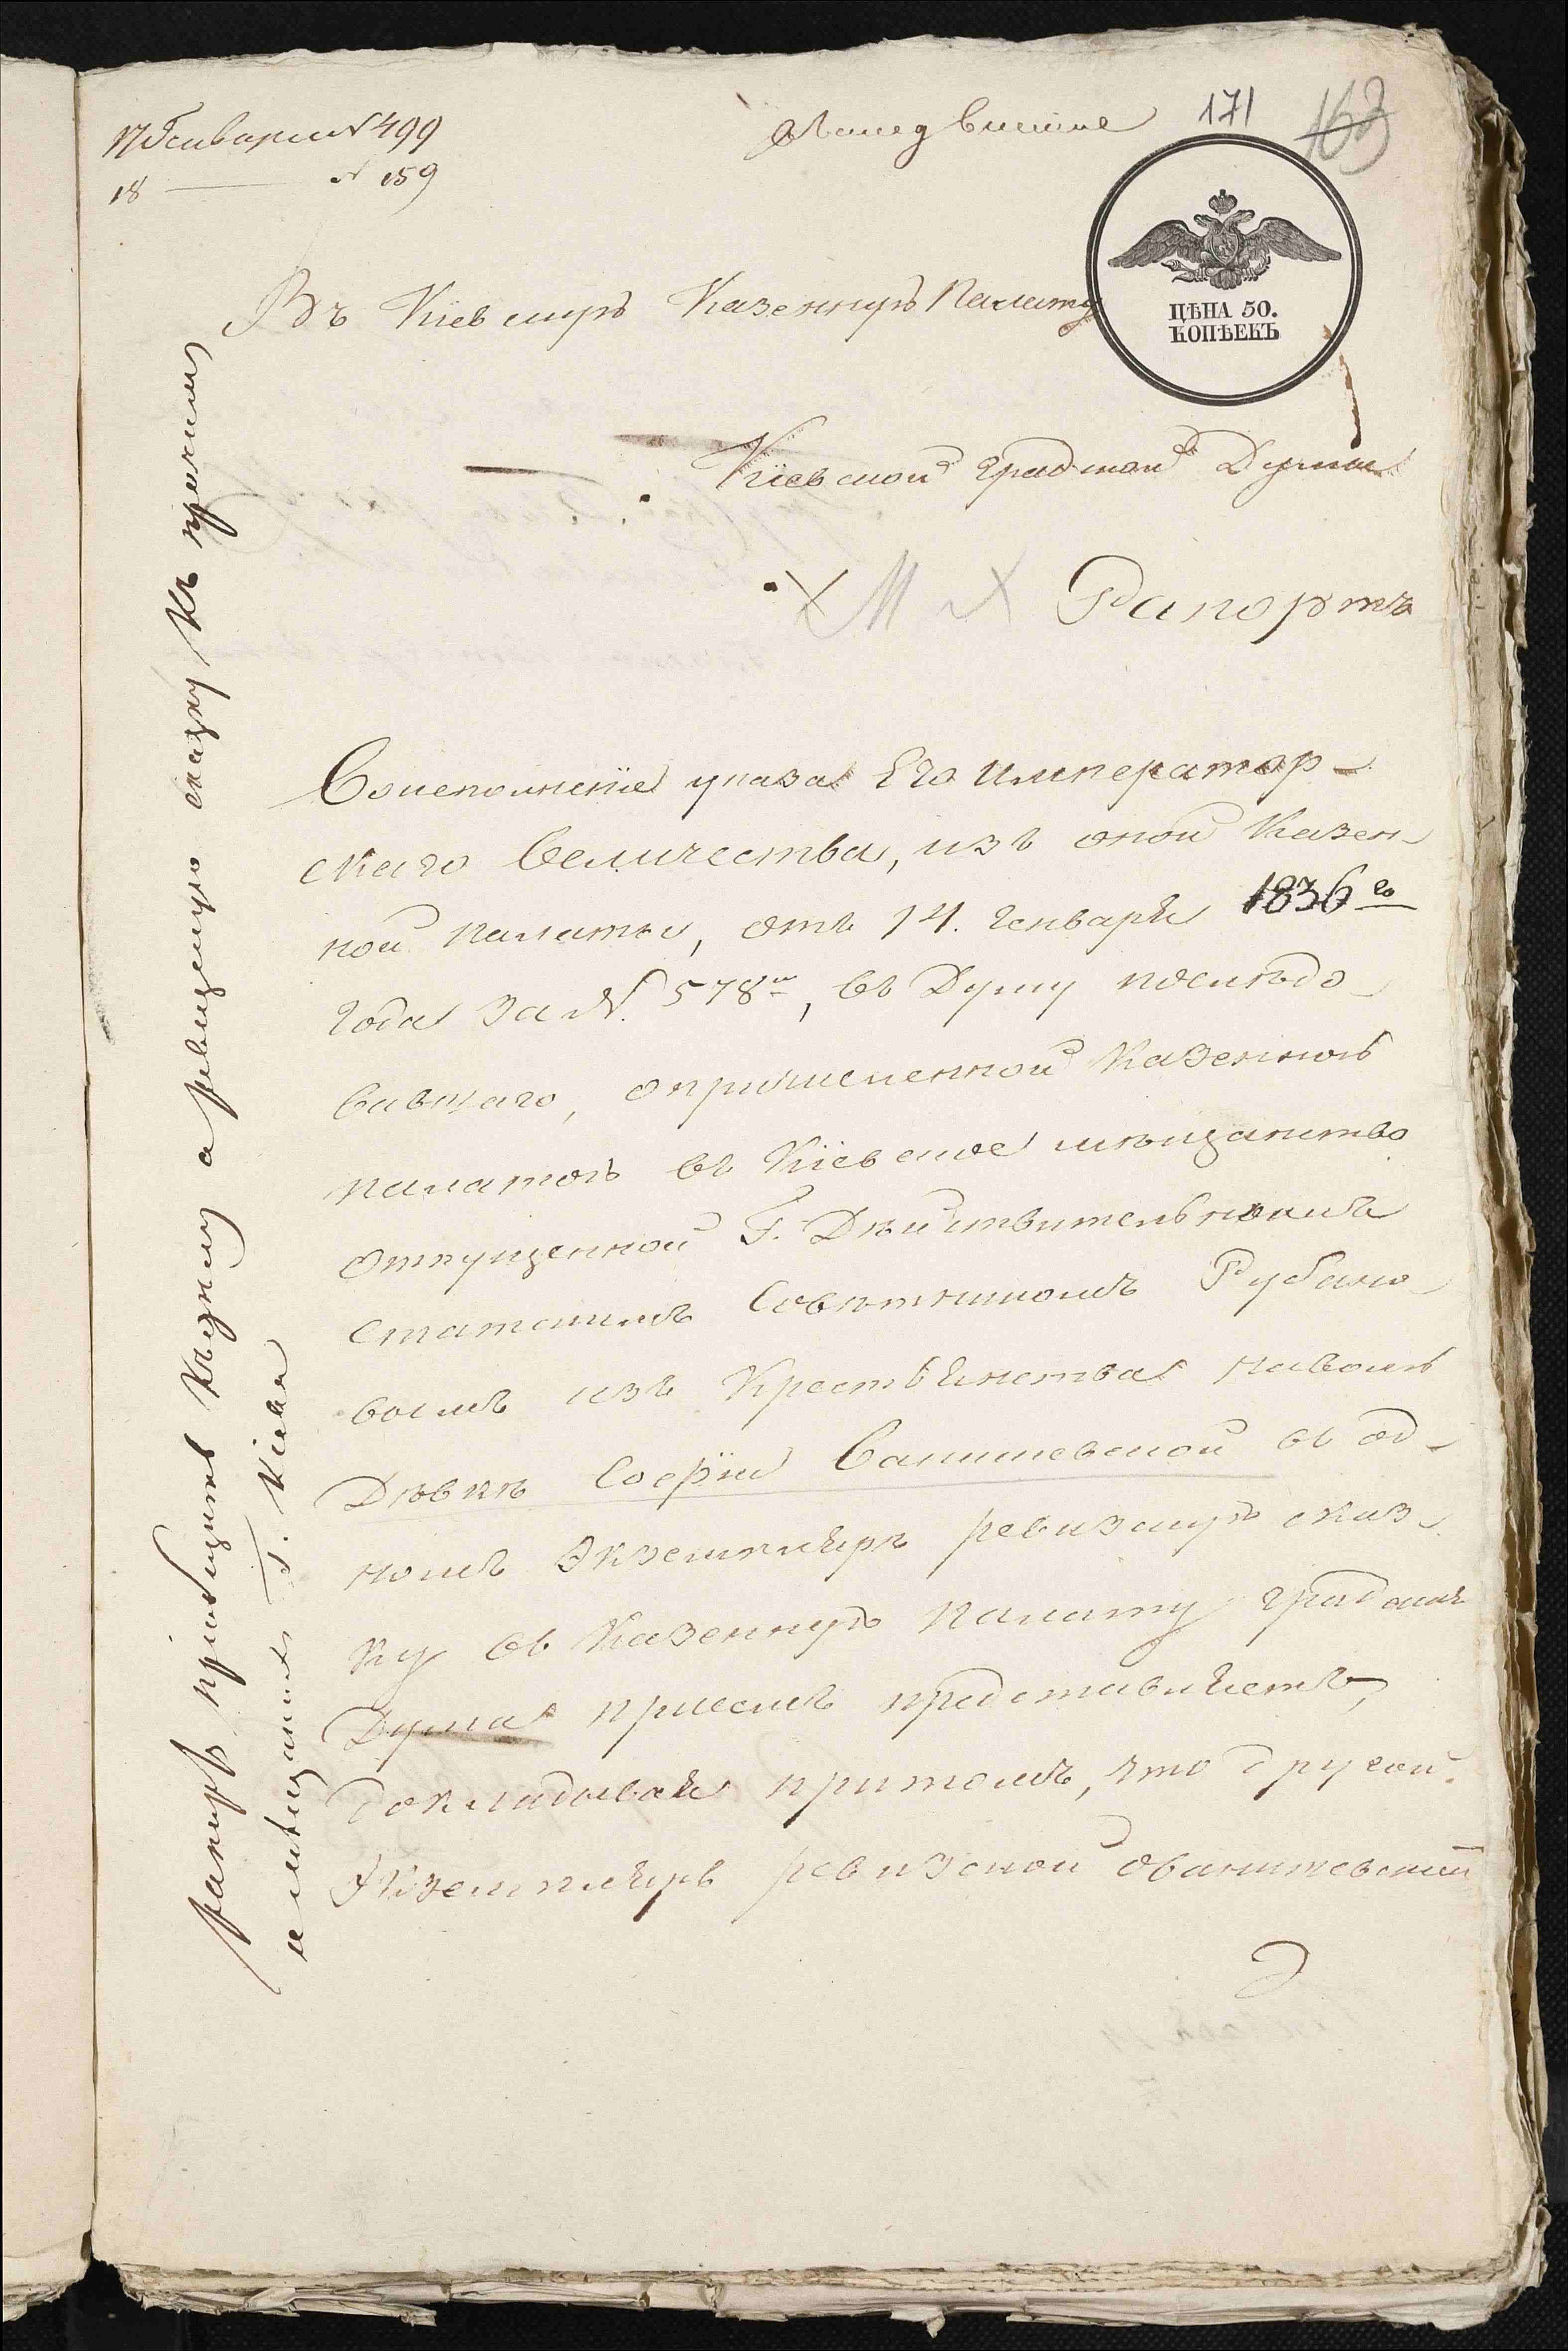 17 Генваря № 499
18 —— № 159
171
163
ЦѢНА 50.
КОПѢЕКЪ
Въ Кіевскую Казенную Палату
Кіевской градской Думы
Рапортъ
Воисполненіе указа Его Император-
скаго Величества, изъ оной Казен-
ной палаты, отъ 14. Генваря 1836го
года за №. 578м, въ Думу послѣдо-
вавшаго, опричисленной Казенною
палатою въ Кіевское мѣщанство
отпущенной Г. Дѣйствительнымъ
статскимъ Совѣтникомъ Рубано-
вымъ изъ Крестьянства наволю
Дѣвкѣ Софіи Ванишевской въ од-
номъ Экземплярѣ ревизскую сказ-
ку въ Казенную палату градская
Дума присемъ представляетъ,
докладывая притомъ, что другой
Экземпляръ ревизской оВанишевской
рапортъ приобщить къ дѣлу а ревизскую сказку къ прочимъ
о мѣщанахъ г. Кіева